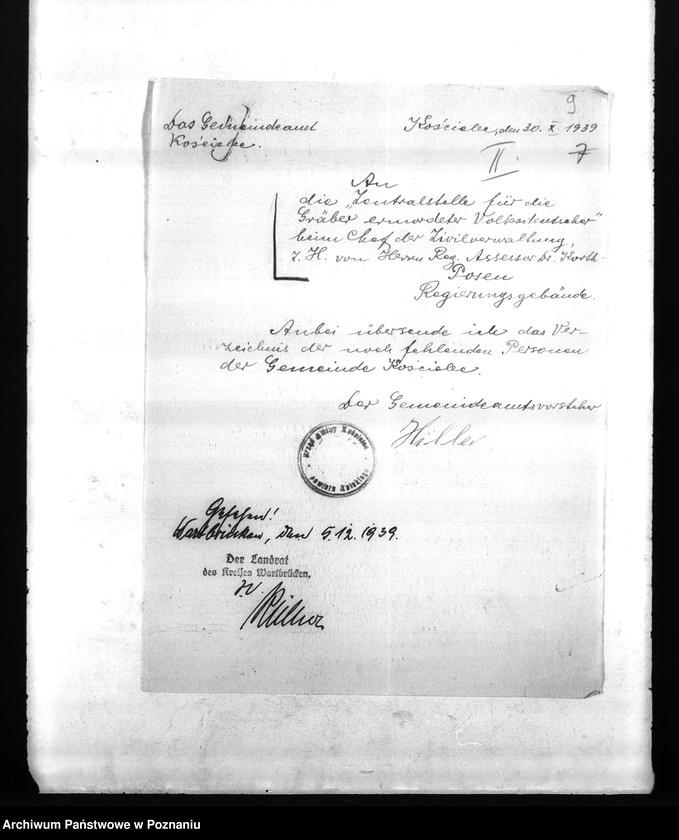 9
Das Gemeindeamt
Kościelec.
Kościelec, den 30. X 1939
II. 7
An
die „Zentralstelle für die
Gräber ermordeter Volksdeutscher"
beim Chef der Zivilverwaltung,
z. H. von Herrn Reg. Assessor Dr. Korth-
Posen
Regierungsgebäude.
Anbei übersende ich das Ver-
zeichnis der noch fehlenden Personen
der Gemeinde Kościelec.
Der Gemeindeamtsvorsteher
Hiller
Urząd Gminy Kościelec
powiatu Kolskiego
Gesehen!
Wartbrücken, den 5.12.1939.
Der Landrat
des Kreises Wartbrücken.
Archiwum Państwowe w Poznaniu